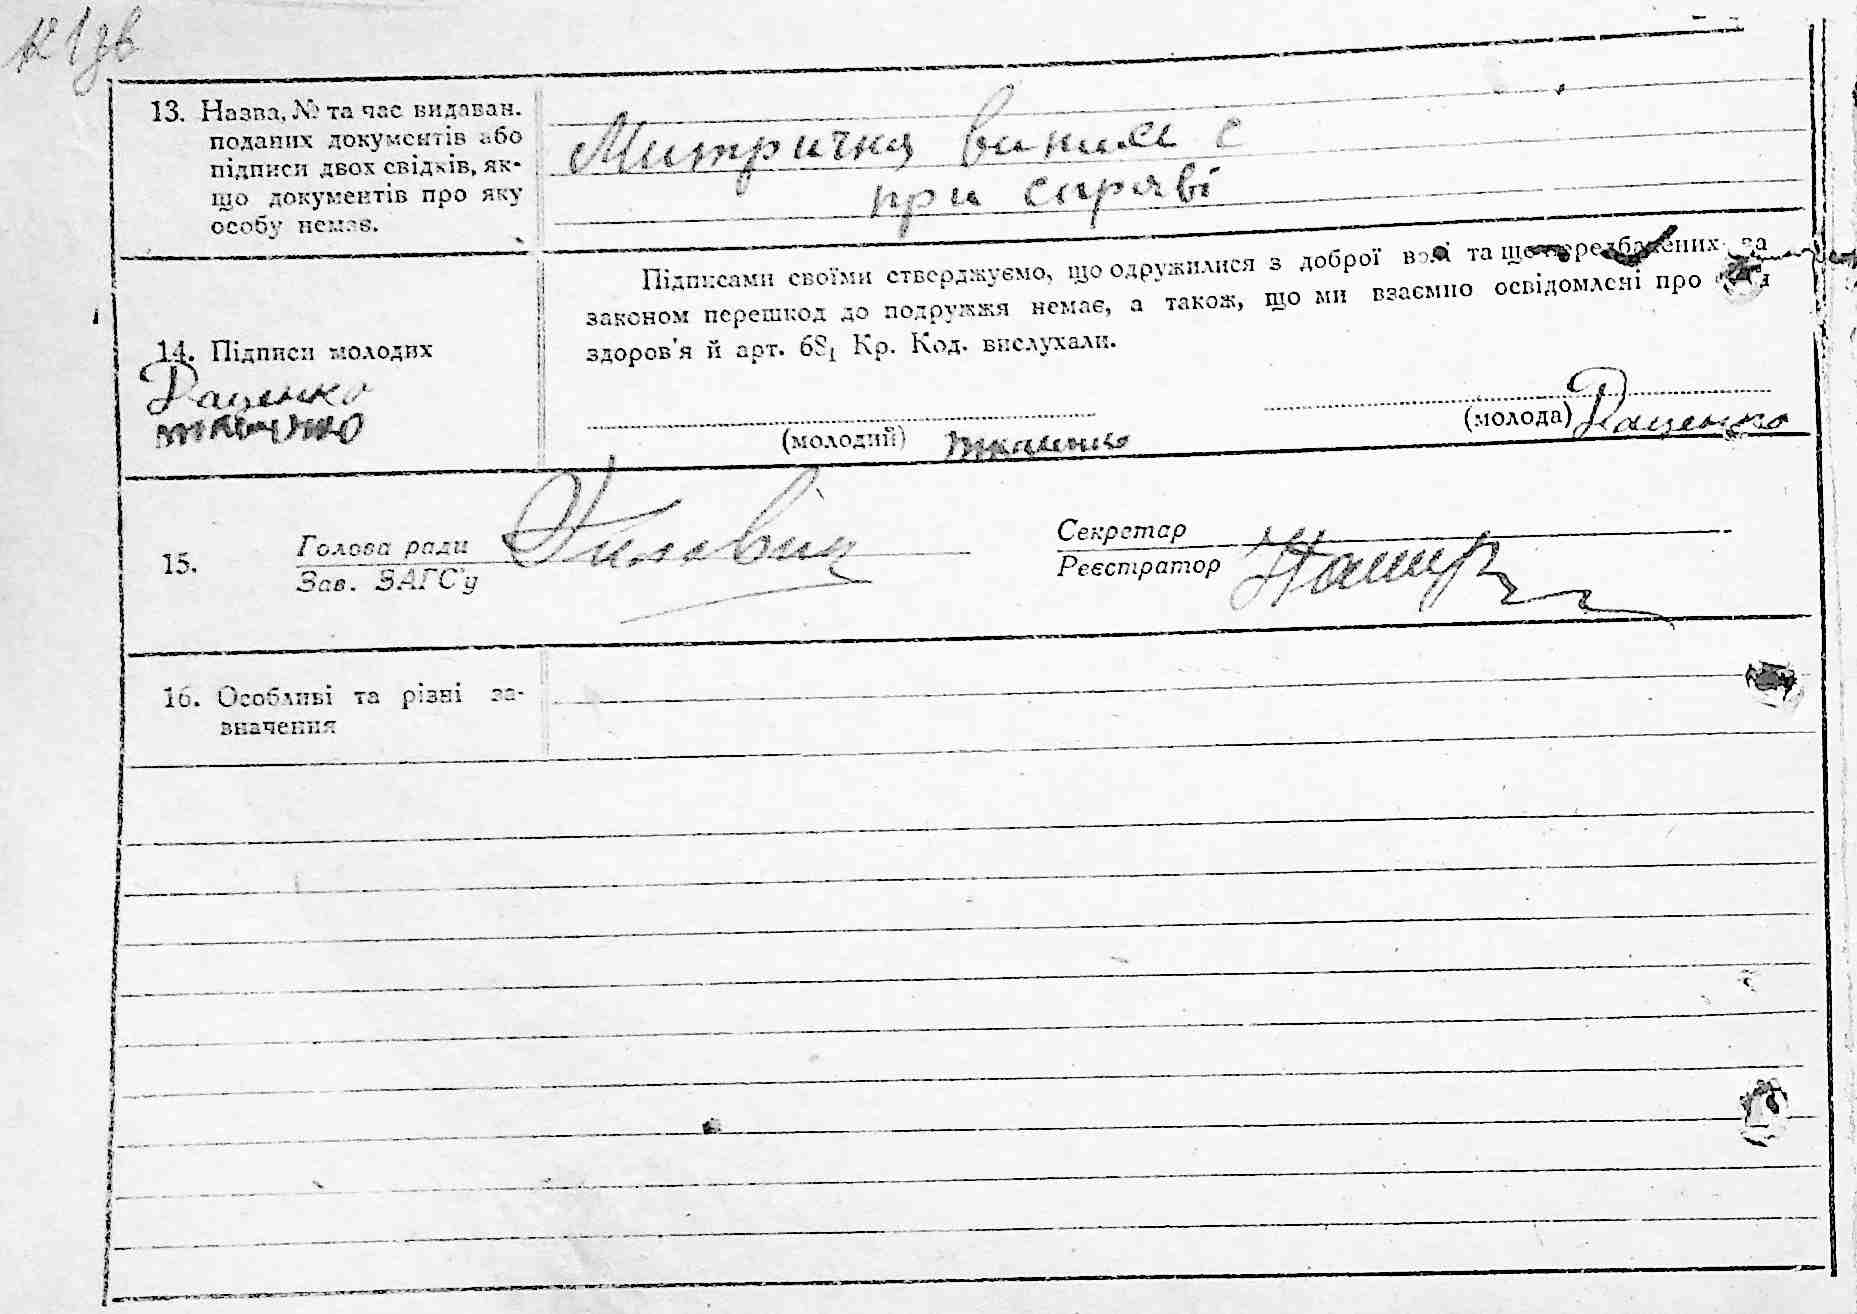 13. Назва, № та час видаван.
поданих документів або
підписи двох свідків, як-
що документів про яку
особу немає.
Митричня випис є
при справі
14. Підписи молодих
Даценко
ткаченко
Підписами своїми стверджуємо, що одружилися з доброї волі та що передбачених за
законом перешкод до подружжя немає, а також, що ми взаємно освідомлені про
здоров'я й арт. 68₁ Кр. Код. вислухали.
(молодий) ткаченко
(молода) Даценко
15.
Голова ради
Зав. ЗАГС'у
Секретар
Реєстратор
16. Особливі та різні за-
значення